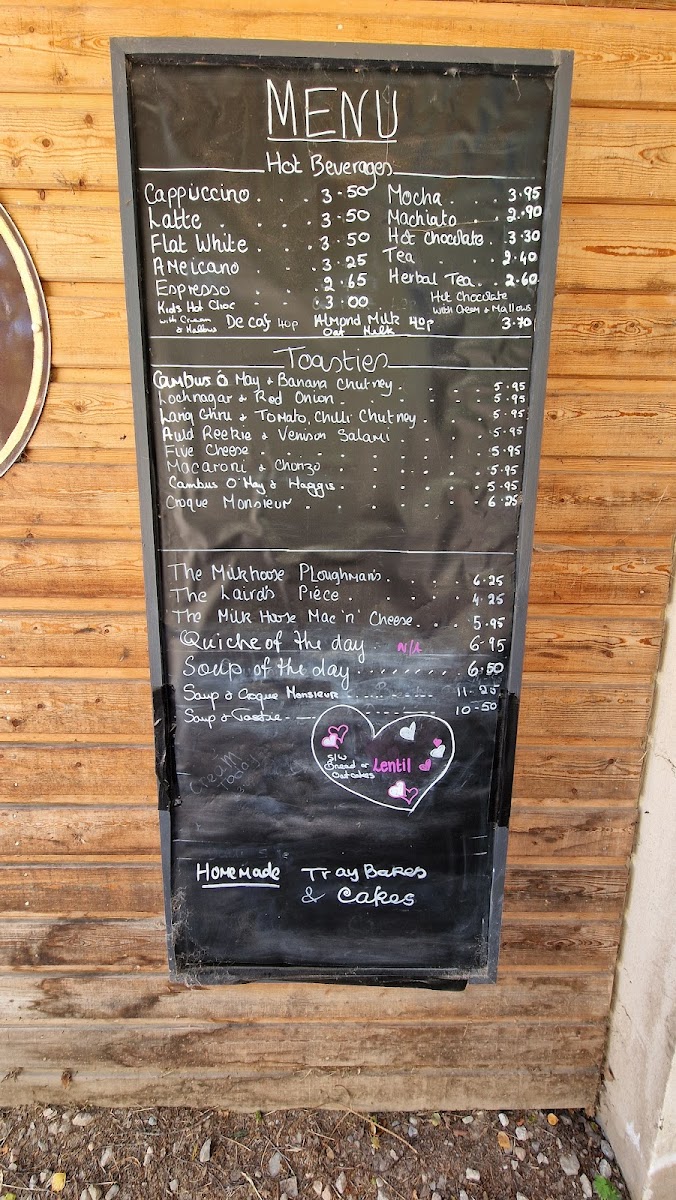 MENU
Hot Beverages
Cappuccino . . . 3.50
Latte . . . 3.50
Flat White . . . 3.50
Americano . . . 3.25
Espresso . . . 2.65
Kids Hot Choc - - . 3.00
with Cream & Mallows
Decaf 40p Almond Milk 40p
Oat Milk
Mocha . . . 3.95
Machiato . . . 2.90
Hot Chocolate . . 3.30
Tea . . . 2.40
Herbal Tea . . 2.60
Hot Chocolate
with Cream & Mallows
3.70
Toasties
Cambus O May & Banana Chutney . . . . 5.95
Lochnagar & Red Onion . . . . . 5.95
Lairig Ghru & Tomato, Chilli Chutney . . . . 5.95
Auld Reekie & Venison Salami . . . . 5.95
Five Cheese . . . . . . 5.95
Macaroni & Chorizo . . . . . 5.95
Cambus O'May & Haggis . . . . . 5.95
Croque Monsieur . . . . . . 6.25
The Milkhoose Ploughman's . . . . 6.25
The Laird's Pièce . . . . . 4.25
The Milk Hoose Mac 'n' Cheese . . . . 5.95
Quiche of the day . N/A 6.95
Soup of the day . . . . . . . 6.50
Soup & Croque Monsieur - - - - - 11.25
Soup & Toastie - - - - 10.50
S/W
Bread or
Oatcakes
Lentil
Homemade Tray Bakes
& Cakes